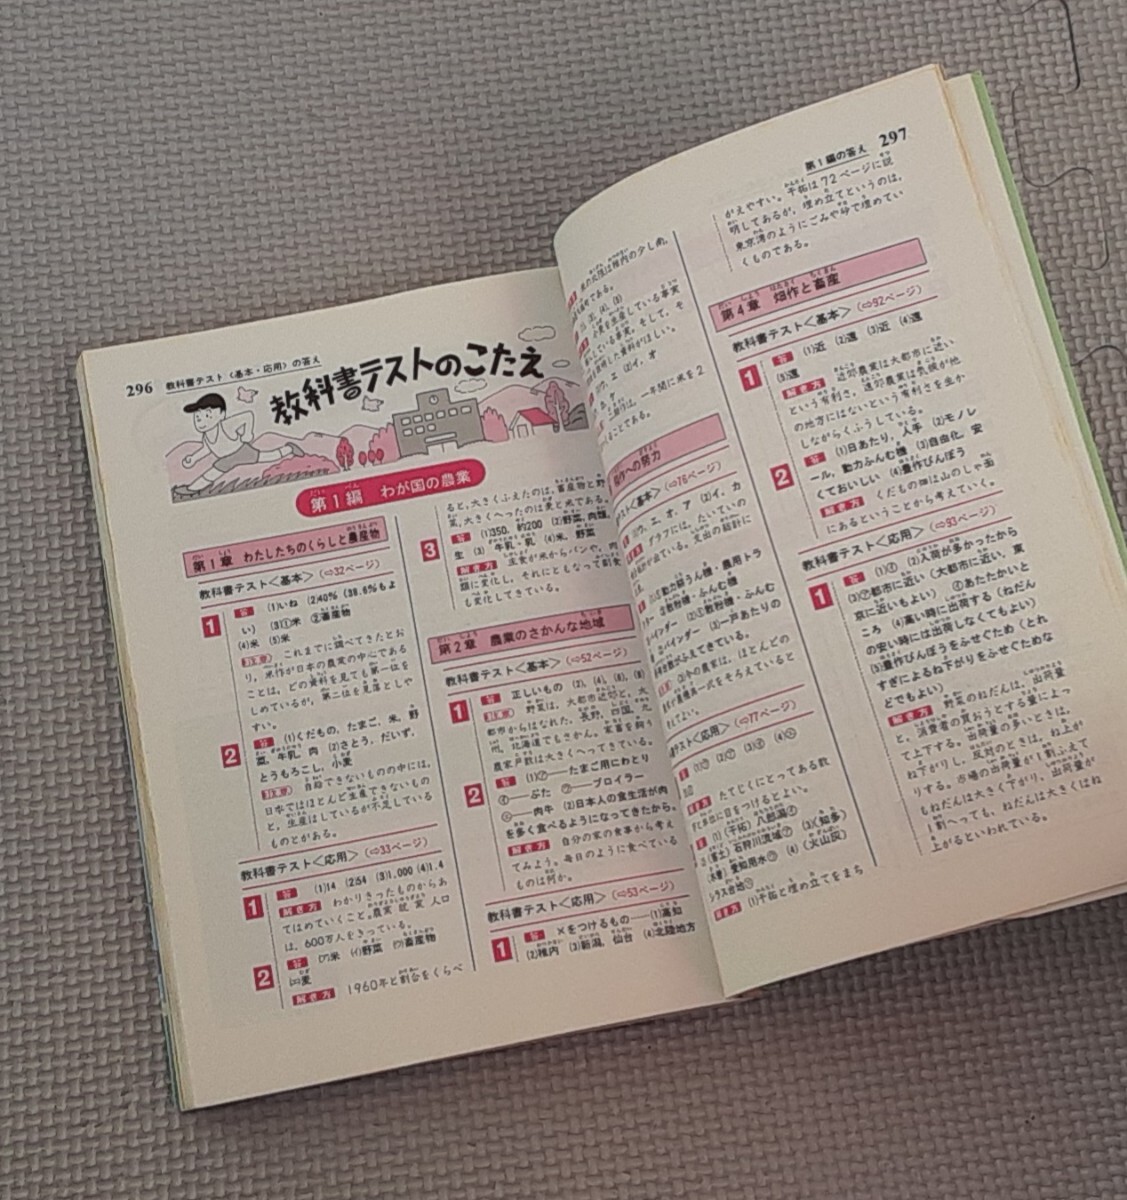 296 教科書テスト〈基本・応用〉の答え
教科書テストのこたえ
第1編 わが国の農業
第1章 わたしたちのくらしと農産物
教科書テスト〈基本〉(⇨32ページ)
1 答 (1)いね (2)40%(38.6%もよ
い) (3)①米 ②畜産物
(4)米 (5)米
これまでに調べてきたとお
り,米作が日本の農業の中心である
ことは,どの資料を見ても第一位を
しめているが,第二位を見落としや
すい。
2 答 (1)くだもの,たまご,米,野
菜,牛乳,肉 (2)さとう,だいず,
とうもろこし,小麦
自給できないものの中には,
日本ではほとんど生産できないもの
と,生産はしているが不足している
ものとがある。
教科書テスト〈応用〉(⇨33ページ)
1 答 (1)14 (2)54 (3)1,000 (4)1.4
解き方 わかりきったものからあ
てはめていくこと。農業就業人口
は,600万人をきっている。
2 答 (ア)米 (イ)野菜 (ウ)畜産物
(エ)麦
解き方 1960年と割合をくらべ
ると,大きくふえたのは,畜産物と野
菜,大きくへったのは麦と米である。
3 答 (1)350,約200 (2)野菜,肉類,
生 (3) 牛乳・乳 (4)米,野菜
解き方 主食が米からパンや,肉
類に変化し,それにともなって副食
も変化してきている。
第2章 農業のさかんな地域
教科書テスト〈基本〉(⇨52ページ)
1 答 正しいもの (2),(4),(6),(8)
野菜は,大都市近郊と,大
都市からはなれた,長野,四国,九
州,北海道でもさかん。家畜を飼う
農家戸数は大きくへってきている。
2 答 (1)㋐——たまご用にわとり
㋑——ぶた ㋒——ブロイラー
——肉牛 (2)日本人の食生活が肉
を多く食べるようになってきたから。
解き方 自分の家の食事から考え
てみよう。毎日のように食べている
ものは何か。
教科書テスト〈応用〉(⇨53ページ)
1 答 ×をつけるもの——(1)高知
(2)稚内 (3)新潟,仙台 (4)北陸地方
第1編の答え 297
作への努力
〈基本〉(⇨76ページ)
ウ,エ,オ,ア (2)イ,カ
グラフには,たいていの
が出ている。支出の総計に
動力耕うん機・農用トラ
動力散粉機・ふんむ機
バインダー (2)
バインダー (3)一戸あたりの
がふえてきている。
今の農家は,ほとんどの
農機具一式をそろえていると
〈応用〉(⇨77ページ)
たてじくにとってある数
に目をつけるとよい。
(1)(干拓)八郎潟
(客土)石狩川流域 (3)(知多)
愛知用水 (4)(火山灰)
シラス台地
解き方 (1)干拓と埋め立てをまち
がえやすい。干拓は72ページに説
明してあるが,埋め立てというのは,
東京湾のようにごみや砂で埋めてい
くものである。
第4章 畑作と畜産
教科書テスト〈基本〉(⇨92ページ)
1 答 (1)近 (2)遠 (3)近 (4)遠
(5)遠
解き方 近郊農業は大都市に近い
という有利さ,遠郊農業は気候が他
の地方にはないという有利さを生か
しながらくふうしている。
2 答 (1)日あたり,人手 (2)モノレ
ール,動力ふんむ機 (3)自由化,安
くておいしい (4)豊作びんぼう
解き方 くだもの畑は山のしゃ面
にあるということから考えていく。
教科書テスト〈応用〉(⇨93ページ)
1 答 (1)㋑ (2)入荷が多かったから
(3)㋐都市に近い(大都市に近い,東
京に近いもよい) ㋑あたたかいと
ころ (4)高い時に出荷する(ねだん
の安い時には出荷しなくてもよい)
(5)豊作びんぼうをふせぐため(とれ
すぎによるね下がりをふせぐためな
どでもよい)
解き方 野菜のねだんは,出荷量
と,消費者の買おうとする量によっ
て上下する。出荷量の多いときは,
ね下がりし,反対のときは,ね上が
りする。市場の出荷量が1割ふえて
もねだんは大きく下がり,出荷量が
1割へっても,ねだんは大きくはね
上がるといわれている。